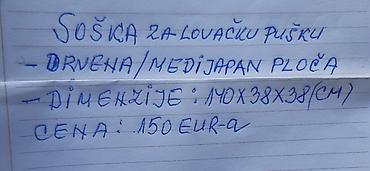 SOŠKA ZA LOVAČKU PUŠKU
- DRVENA/MEDIJAPAN PLOČA
- DIMENZIJE: 140X38X38(CM)
CENA: 150 EUR-a